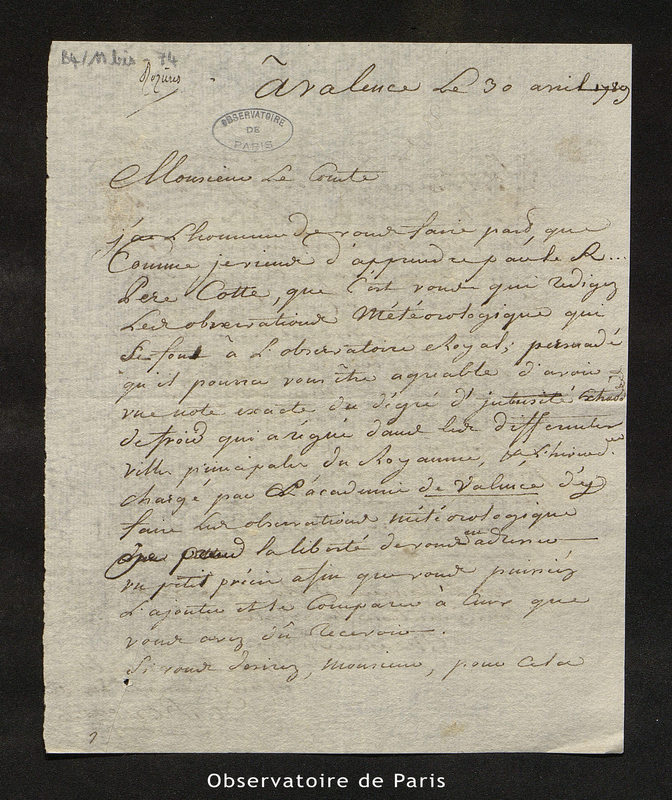 B4/11 bis 74
Rozières
à valence Le 30 avril 1789
OBSERVATOIRE
DE
PARIS
Monsieur Le Comte
j'ai L'honneur de vous faire part que
Comme je viens d'apprendre par le R...
Pere Cotte, que C'est vous qui redigez
Les observations Météorologique que
se font à L'observatoire Royal; persuadé
qu'il pourra vous être agreable d'avoir
une note exacte du dégré d'
de froid qui a régné dans les differentes
villes principales du Royaume,
chargé par L'académie de Valence d'y
faire Les observations météorologique
je prend la liberté de vous en adresser
un petit précis afin que vous puissiez
L'ajouter et le Comparer à Ceux que
vous avez dû recevoir.
Si vous desirez, monsieur, pour cela
Observatoire de Paris